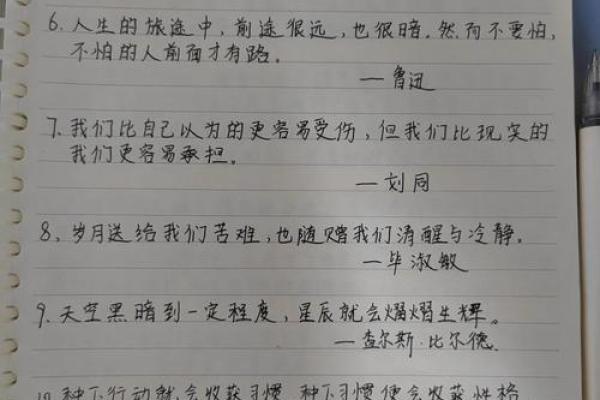 6. 人生的旅途中，前途很远，也很暗。然而不要怕，
不怕的人前面才有路。
—鲁迅
7. 我们比自己以为的更容易受伤，但我们比现实的
我们更容易承担。
—刘同
8、岁月送给我们苦难，也随赠我们清醒与冷静。
—毕淑敏
9. 天空黑暗到一定程度，星辰就会熠熠生辉。
—查尔斯·比尔德
10. 种下行动就会收获习惯，种下习惯便会收获性格